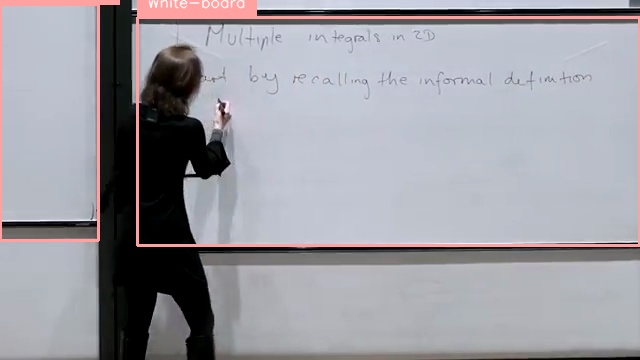 White-board
Multiple integrals in 2D
by recalling the informal definition